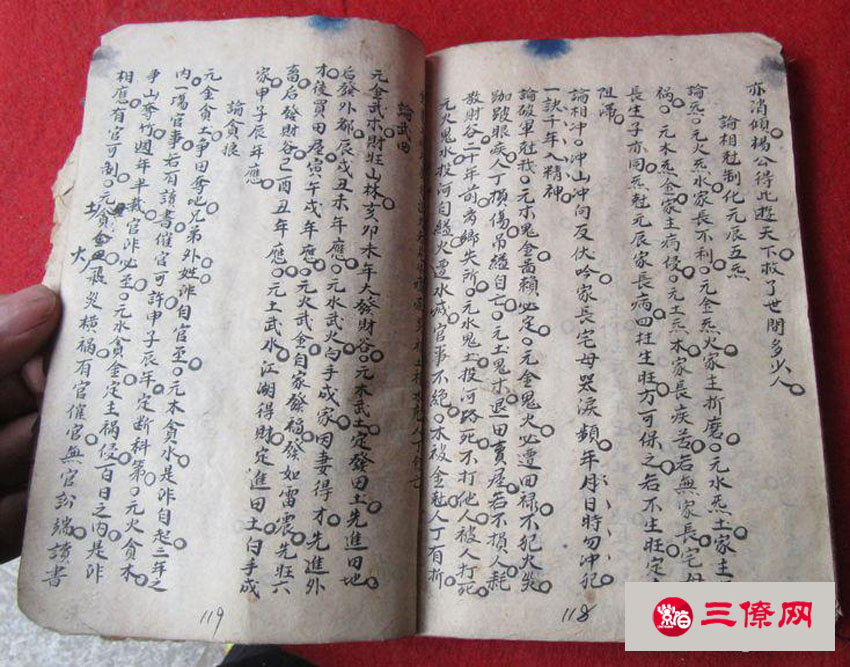 亦消傾楊公得此遊天下救了世間多少人
論相尅制化元辰五炁
論炁元火炁水家長不利元金炁火家主折磨元水炁土家主
禍元木炁金家主病侵元土炁木家長疾苦若無家長宅母
長生子亦同炁尅元辰家長病四柱生旺方可保之若不生旺定
阻滯
論相冲冲山冲向反伏吟家長宅母哭淚頻年月日時勿冲犯
一訣千年入精神
論破軍尅我元木鬼金嗇賴必定元金鬼火必遭回祿不犯火災
跏跛眼疾人丁損傷吊縊自亡元土鬼木退田賣居若不損人耗
散財谷二十年前离鄉失所元水鬼土投河路死不打他人被人打死
元火鬼水投河自縊火遭水城官事不絕木被金尅人丁有折
論武曲
元金武木財旺山林亥卯未年大發財谷元木武土定發田土先進田地
后發外郷辰戌丑未年應元水武火白手成家因妻得才先進外
才後買田居寅午戌年應元火武金自家發福發如雷震先旺六
畜后發財谷己酉丑年應元土武水江湖得財定進田土白手成
家甲子辰年應
論貪狼
元金貪土争田奪地兄弟外姓非自官至元木貪水是非自起三年之
内一塲官事若有讀書催官可許甲子辰年定断科第元火貪木
爭山奪竹週年半載官非必至元水貪金定主禍侵百日之内是非
相應有官可尚元貪飛災横禍有官催官無官訟端讀書
土
火
119
118
三僚网